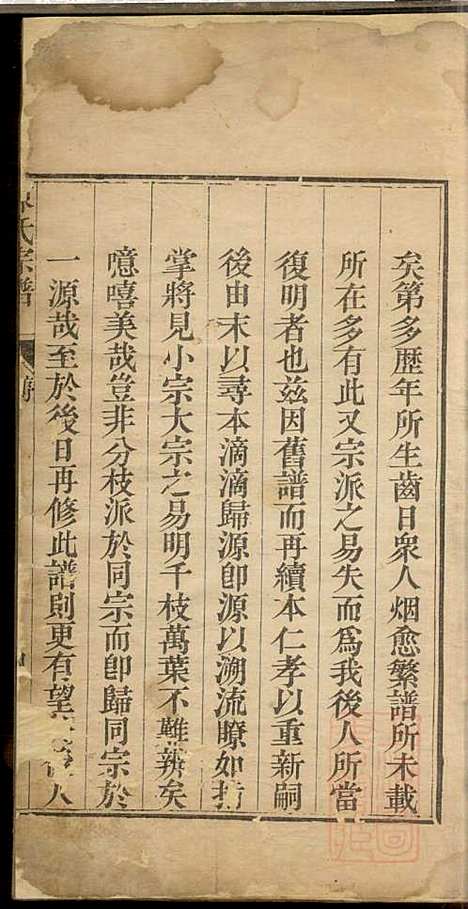 矣第多歷年所生齒日衆人烟愈繁譜所未載
所在多有此又宗派之易失而爲我後人所當
復明者也兹因舊譜而再續本仁孝以重新嗣
後由末以尋本滴滴歸源即源以溯流瞭如指
掌將見小宗大宗之易明千枝萬葉不難辨矣
噫嘻美哉豈非分枝派於同宗而即歸同宗於
一源哉至於後日再修此譜則更有望人
氏宗譜
序